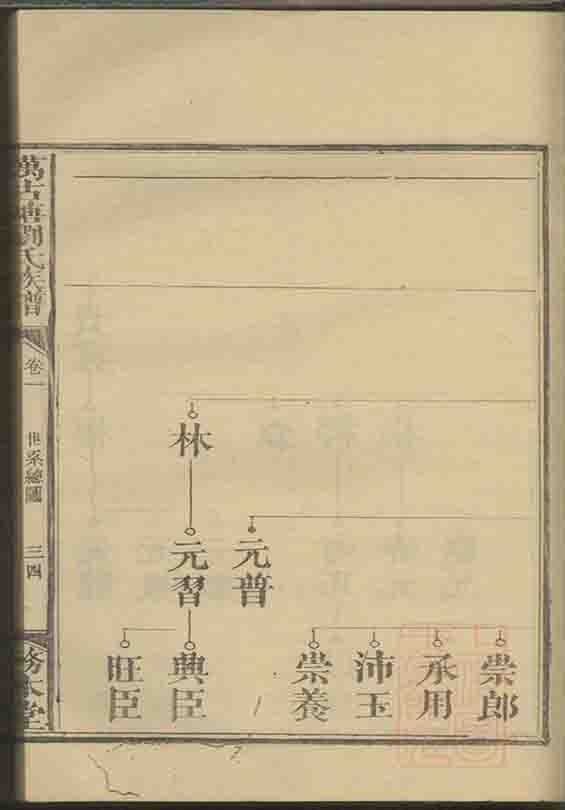 崇郎
承用
沛玉
崇養
元普
林
元習
興臣
旺臣
萬古塘劉氏族譜
卷一
世系總圖
三四
務本堂